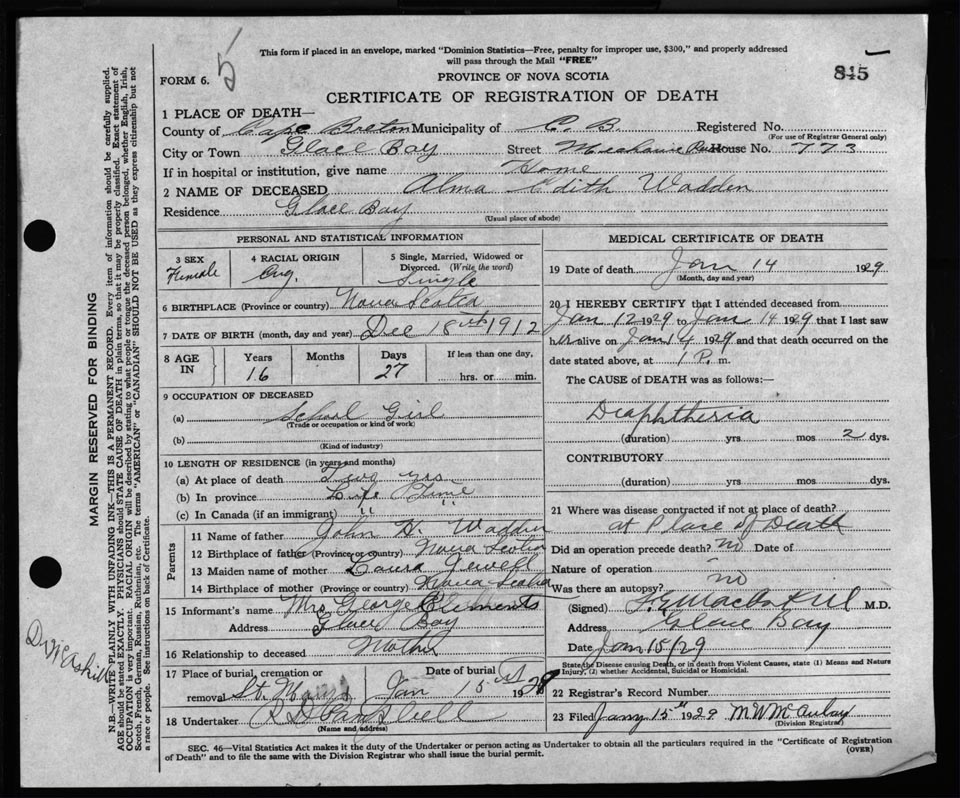 5
This form if placed in an envelope, marked "Dominion Statistics—Free, penalty for improper use, $300," and properly addressed
will pass through the Mail "FREE"
845
FORM 6.
PROVINCE OF NOVA SCOTIA
CERTIFICATE OF REGISTRATION OF DEATH
1 PLACE OF DEATH—
County of Cape Breton Municipality of C. B. Registered No.
(For use of Registrar General only)
City or Town Glace Bay Street House No. 773
If in hospital or institution, give name Home
2 NAME OF DECEASED Alma Edith Wadden
Residence Glace Bay
(Usual place of abode)
PERSONAL AND STATISTICAL INFORMATION
3 SEX 4 RACIAL ORIGIN 5 Single, Married, Widowed or
Divorced. (Write the word)
Female Eng. Single
6 BIRTHPLACE (Province or country) Nova Scotia
7 DATE OF BIRTH (month, day and year) Dec 18th 1912
8 AGE IN Years Months Days If less than one day,
16 27 hrs. or min.
9 OCCUPATION OF DECEASED
(a) School Girl
(Trade or occupation or kind of work)
(b)
(Kind of industry)
10 LENGTH OF RESIDENCE (in years and months)
(a) At place of death Two yrs
(b) In province Life Time
(c) In Canada (if an immigrant) " "
Parents
11 Name of father John H. Wadden
12 Birthplace of father (Province or country) Nova Scotia
13 Maiden name of mother Laura Jewell
14 Birthplace of mother (Province or country) Nova Scotia
15 Informant's name Mrs George Clements
Address Glace Bay
16 Relationship to deceased Mother
17 Place of burial, cremation or Date of burial
removal St. Jan 15 1929
18 Undertaker
(Name and address)
MEDICAL CERTIFICATE OF DEATH
19 Date of death Jan 14 1929
(Month, day and year)
20 I HEREBY CERTIFY that I attended deceased from
Jan 12 1929 to Jan 14 1929 that I last saw
her alive on Jan 14 1929 and that death occurred on the
date stated above, at 1 P. m.
The CAUSE of DEATH was as follows:—
Diaphtheria
(duration) yrs mos 2 dys.
CONTRIBUTORY
(duration) yrs. mos dys.
21 Where was disease contracted if not at place of death?
at Place of Death
Did an operation precede death? no Date of
Nature of operation
Was there an autopsy? no
(Signed) M.D.
Address Glace Bay
Date Jan 15/29
State the Disease causing Death, or in death from Violent Causes, state (1) Means and Nature
Injury, (2) whether Accidental, Suicidal or Homicidal.
22 Registrar's Record Number
23 Filed Jany 15th 1929
(Division Registrar)
SEC. 46—Vital Statistics Act makes it the duty of the Undertaker or person acting as Undertaker to obtain all the particulars required in the "Certificate of Registration
of Death" and to file the same with the Division Registrar who shall issue the burial permit.
(OVER)
MARGIN RESERVED FOR BINDING
N.B.—WRITE PLAINLY WITH UNFADING INK—THIS IS A PERMANENT RECORD. Every item of information should be carefully supplied.
AGE should be stated EXACTLY. PHYSICIANS should STATE CAUSE OF DEATH in plain terms, so that it may be properly classified. Exact statement of
OCCUPATION is very important. RACIAL ORIGIN will be described by stating to what people or tongue the deceased person belonged, whether English, Irish,
Scotch, French, German, Russian, Ruthenian, etc. The terms "AMERICAN" or "CANADIAN" SHOULD NOT BE USED as they express citizenship but not
a race or people. See instructions on back of Certificate.